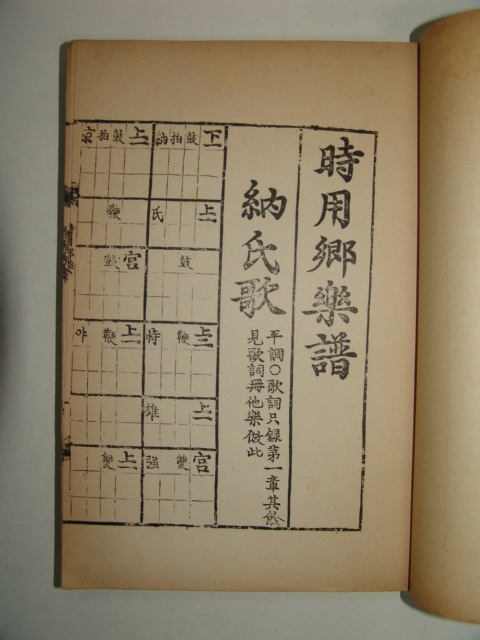 時用鄉樂譜
納氏歌
平調○歌詞只錄第一章其餘
見歌詞冊他樂倣此
下一 鼓 拍 納
上一 氏
鼓
上二 鞭 恃
上一 雄
宮 雙 强
上一 鼓 拍
鞭
宮 鼓
上一 鞭
上一 雙